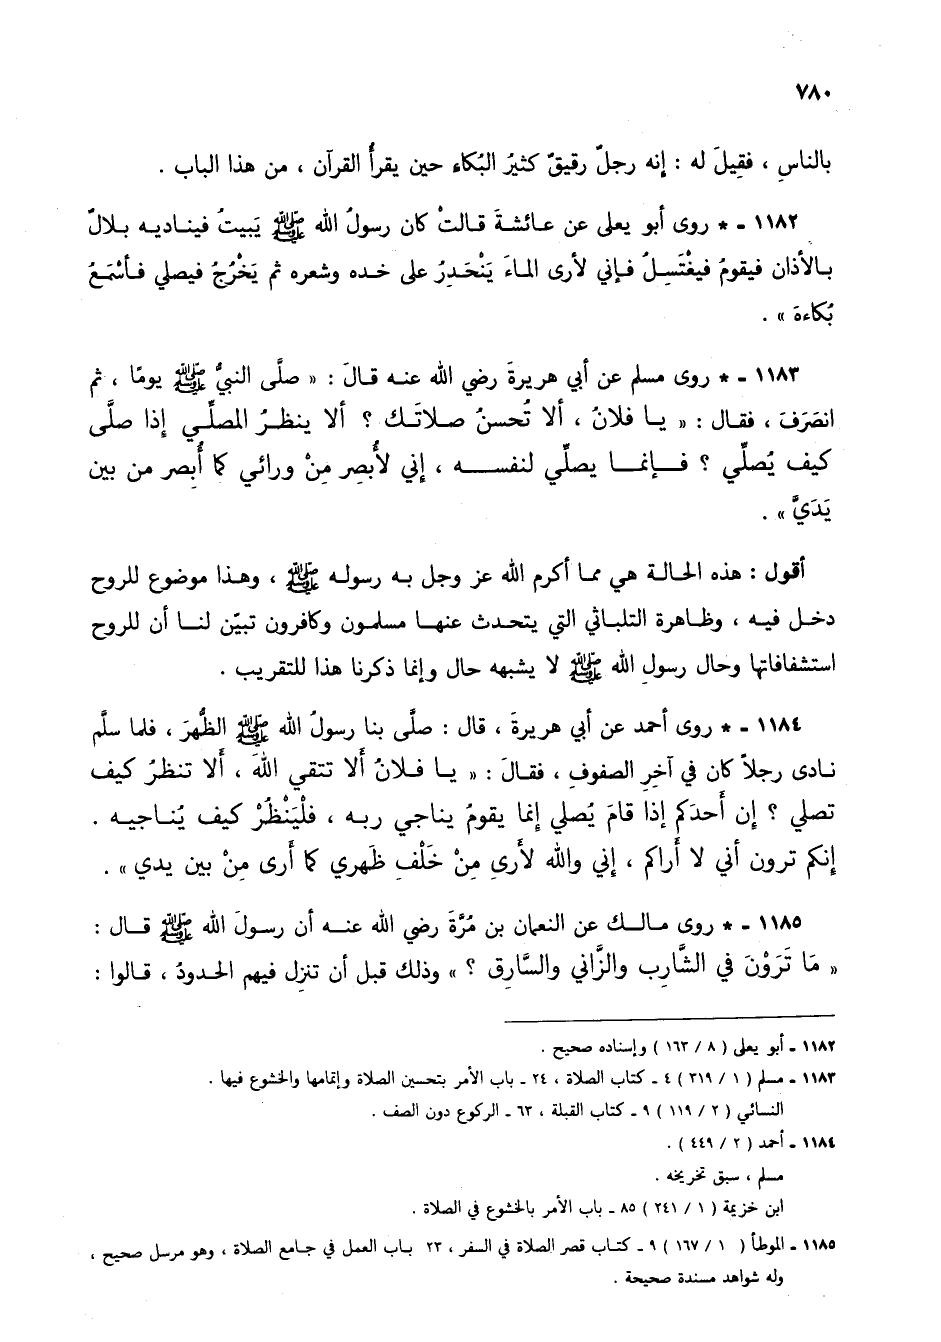 ٧٨٠
بالناسِ ، فقِيلَ له : إنه رجلٌ رقيقٌ كثيرُ البُكاء حين يقرأُ القرآن ، من هذا الباب .
١١٨٢ ـ * روى أبو يعلى عن عائشةَ قالتْ كان رسولُ الله ﷺ يَبيتُ فيناديه بلالٌ
بالأذان فيقومُ فيغْتَسلُ فإني لأرى الماءَ يَنْحَدِرُ على خده وشعره ثم يَخْرُجُ فيصلي فأسْمَعُ
بُكاءهَ » .
١١٨٣ ـ * روى مسلم عن أبي هريرةَ رضي الله عنه قالَ : « صلَّى النبيُّ ﷺ يومًا ، ثم
انصَرَفَ ، فقال : « يا فلانُ ، ألا تُحسنُ صلاتَك ؟ ألا ينظرُ المصلِّي إذا صلَّى
كيف يُصلِّي ؟ فإنما يصلِّي لنفسه ، إني لأُبصِر مِنْ ورائي كما أُبصِر من بين
يَدَيَّ » .
أقول : هذه الحالة هي مما أكرم الله عز وجل به رسوله ﷺ ، وهذا موضوع للروح
دخل فيه ، وظاهرة التلباثي التي يتحدث عنها مسلمون وكافرون تبيّن لنا أن للروح
استشفافاتها وحال رسولِ الله ﷺ لا يشبهه حال وإنما ذكرنا هذا للتقريب .
١١٨٤ ـ * روى أحمد عن أبي هريرةَ ، قال : صلَّى بنا رسولُ الله ﷺ الظُّهرَ ، فلما سلَّم
نادى رجلاً كان في آخرِ الصفوف ، فقالَ : « يا فلانُ ألا تتقي اللهَ ، ألا تنظرُ كيف
تصلي ؟ إن أحدَكم إذا قامَ يُصلي إنما يقومُ يناجي ربه ، فلْيَنْظُرْ كيف يُناجيه .
إنكم ترون أني لا أراكم ، إني والله لأَرى مِنْ خَلْفِ ظَهري كما أَرى مِنْ بين يدي » .
١١٨٥ ـ * روى مالك عن النعمان بن مُرَّةَ رضي الله عنه أن رسولَ الله ﷺ قال :
« مَا تَرَوْنَ في الشَّارِب والزَّاني والسَّارِق ؟ » وذلك قبل أن تنزل فيهم الحدودُ ، قالوا :
١١٨٢ ـ أبو يعلى ( ٨ / ١٦٣ ) وإسناده صحيح .
١١٨٣ ـ مسلم ( ١ / ٣١٩ ) ٤ ـ كتاب الصلاة ، ٢٤ ـ باب الأمر بتحسين الصلاة وإتمامها والخشوع فيها .
النسائي ( ٢ / ١١٩ ) ٩ ـ كتاب القبلة ، ٦٣ ـ الركوع دون الصف .
١١٨٤ ـ أحمد ( ٢ / ٤٤٩ ) .
مسلم ، سبق تخريجه .
ابن خزيمة ( ١ / ٢٤١ ) ٨٥ ـ باب الأمر بالخشوع في الصلاة .
١١٨٥ ـ الموطأ ( ١ / ١٦٧ ) ٩ ـ كتاب قصر الصلاة في السفر ، ٢٣ باب العمل في جامع الصلاة ، وهو مرسل صحيح ،
وله شواهد مسندة صحيحة .